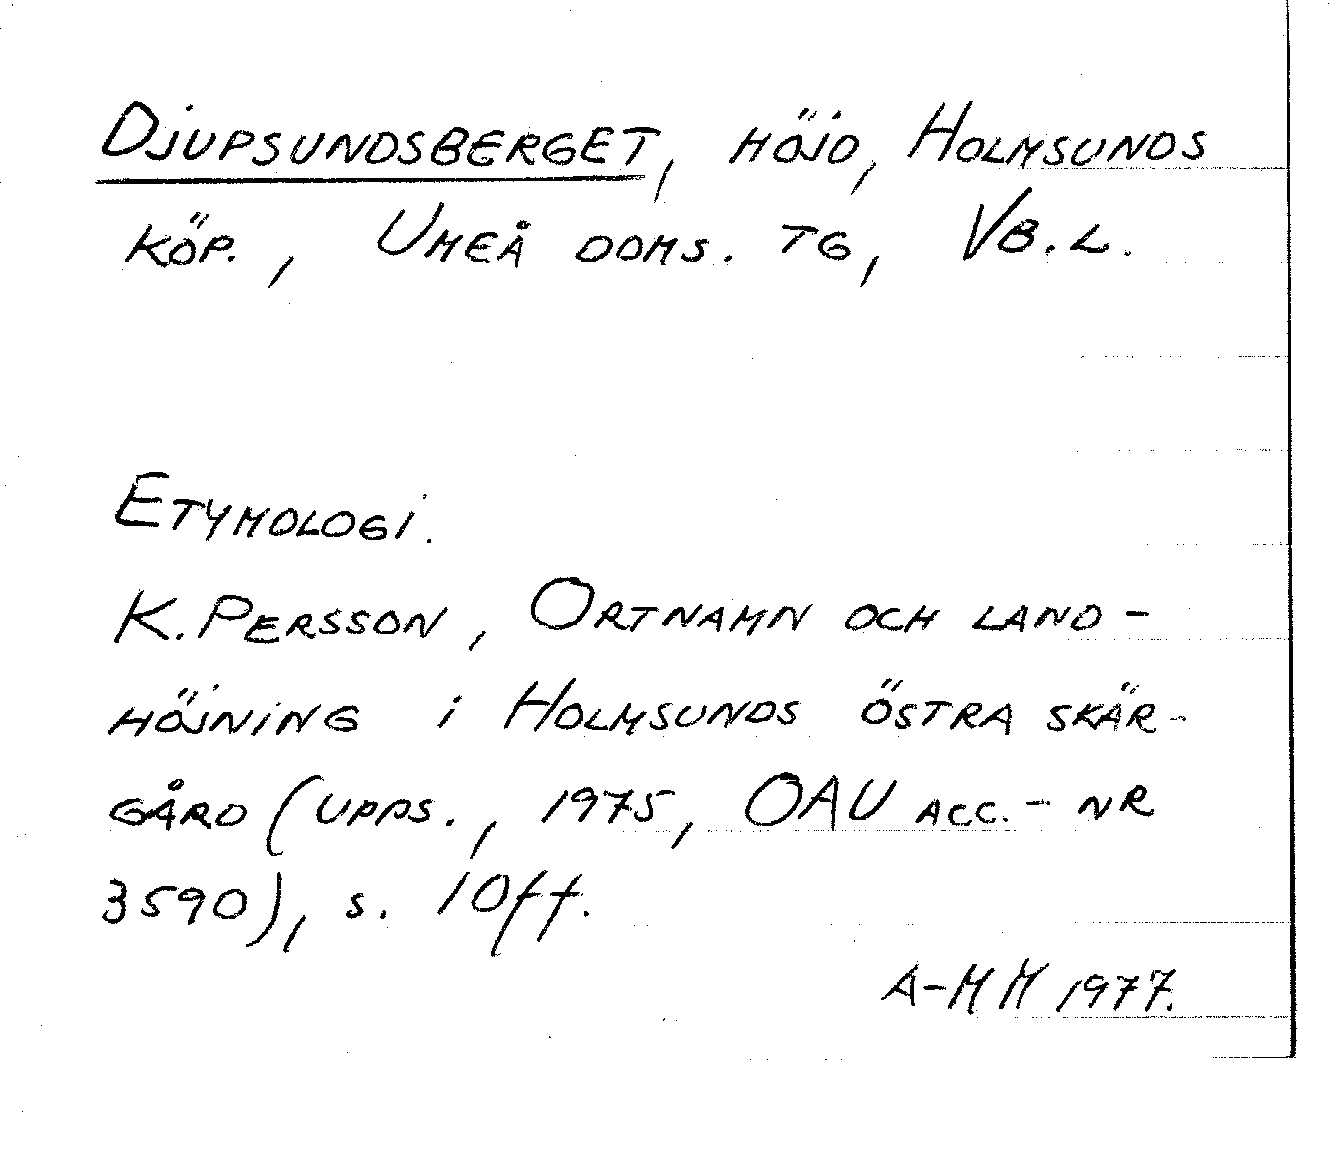 Djupsundsberget, höjd, Holmsunds
köp., Umeå doms. tg, Vb.l.
Etymologi.
K. Persson, Ortnamn och land-
höjning i Holmsunds östra skär-
gård (Upps., 1975, OAU acc.-nr
3590), s. 10ff.
A-MM 1977.